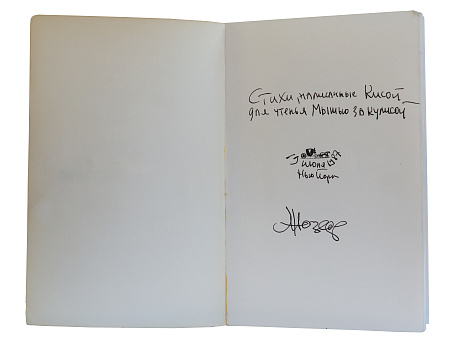 Стихи, написанные Кисой –
для чтенья Мышью за кулисой
июня
Нью Йорк